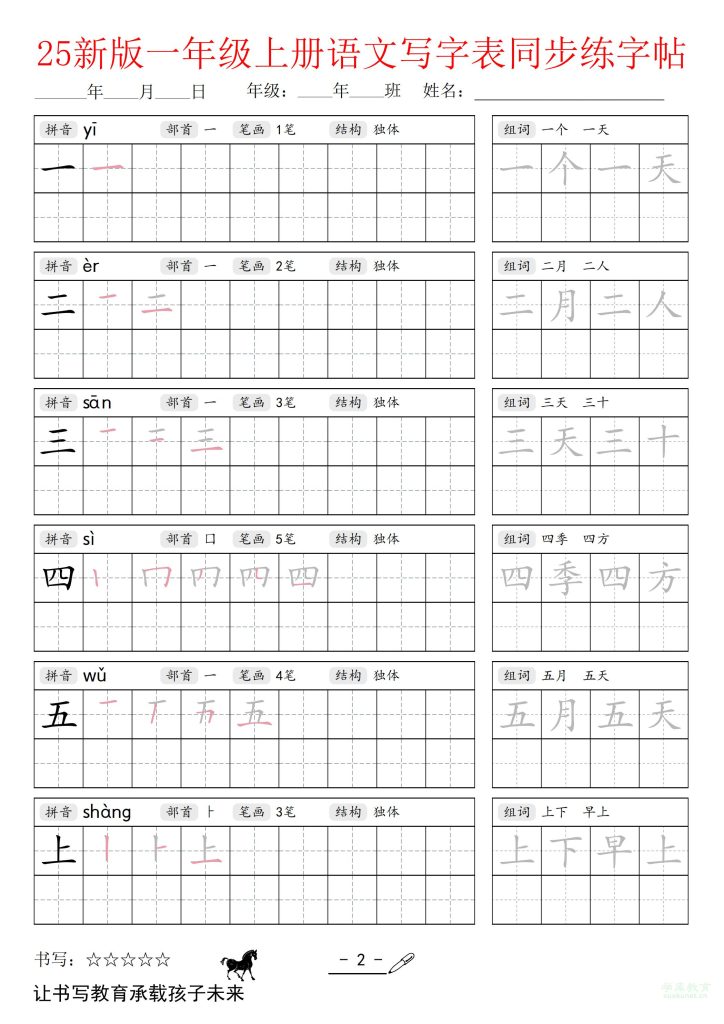 25新版一年级上册语文写字表同步练字帖
______年____月____日 年级：____年____班 姓名：____________________
拼音 yī 部首 一 笔画 1笔 结构 独体 组词 一个 一天
一 一 一个一天
拼音 èr 部首 一 笔画 2笔 结构 独体 组词 二月 二人
二 一 二 二月二人
拼音 sān 部首 一 笔画 3笔 结构 独体 组词 三天 三十
三 一 二 三 三天三十
拼音 sì 部首 口 笔画 5笔 结构 独体 组词 四季 四方
四 四 四季四方
拼音 wǔ 部首 一 笔画 4笔 结构 独体 组词 五月 五天
五 一 五 五月五天
拼音 shàng 部首 ⺊ 笔画 3笔 结构 独体 组词 上下 早上
上 丨 ⺊ 上 上下早上
书写：☆☆☆☆☆ - 2 -
让书写教育承载孩子未来